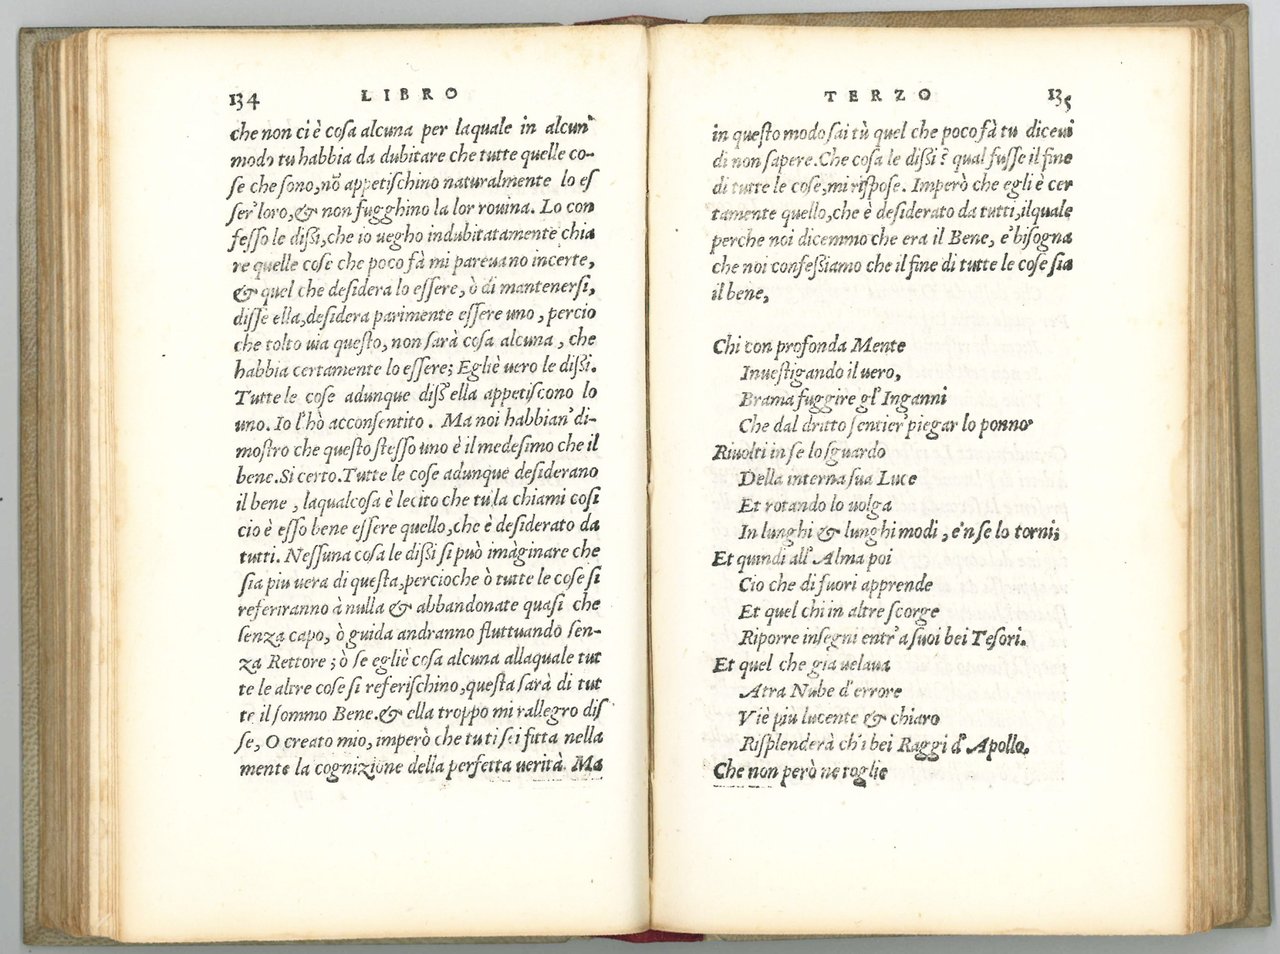 134 LIBRO
che non ci è cosa alcuna per laquale in alcun'
modo tu habbia da dubitare che tutte quelle co-
se che sono, nō appetischino naturalmente lo es
ser' loro, & non fugghino la lor rouina. Lo con
fesso le dissi, che io ueggho indubitatamente chia
re quelle cose che poco fà mi pareuano incerte,
& quel che desidera lo essere, ò di mantenersi,
disse ella, desidera parimente essere uno, percio
che tolto uia questo, non sarà cosa alcuna, che
habbia certamente lo essere; Egliè uero le dissi.
Tutte le cose adunque diss' ella appetiscono lo
uno. Io l'hò acconsentito. Ma noi habbian' di-
mostro che questo stesso uno è il medesimo che il
bene. Si certo. Tutte le cose adunque desiderano
il bene, laqualcosa è lecito che tu la chiami cosi
cio è esso bene essere quello, che è desiderato da
tutti. Nessuna cosa le dissi si può imàginare che
sia piu uera di questa, percioche ò tutte le cose si
referiranno à nulla & abbandonate quasi che
senza capo, ò guida andranno fluttuando sen-
za Rettore; ò se egliè cosa alcuna allaquale tut
te le altre cose si referischino, questa sarà di tut
te il sommo Bene. & ella troppo mi rallegro dis
se, O creato mio, imperò che tu ti sei fitta nella
mente la cognizione della perfetta uerità. Ma
TERZO 135
in questo modo sai tù quel che poco fà tu diceui
di non sapere. Che cosa le dissi? qual fusse il fine
di tutte le cose, mi rispose. Imperò che egli è cer
tamente quello, che è desiderato da tutti, ilquale
perche noi dicemmo che era il Bene, e' bisogna
che noi confessiamo che il fine di tutte le cose sia
il bene,
Chi con profonda Mente
Inuestigando il uero,
Brama fuggire gl' Inganni
Che dal dritto sentier' piegar lo ponno
Riuolti in se lo sguardo
Della interna sua Luce
Et rotando lo uolga
In lunghi & lunghi modi, e'n se lo torni;
Et quindi all' Alma poi
Cio che di fuori apprende
Et quel chi in altre scorge
Riporre insegni entr' a suoi bei Tesori.
Et quel che già uelaua
Atra Nube d'errore
Viè più lucente & chiaro
Risplenderà ch'i bei Raggi d' Apollo.
Che non però ne toglie